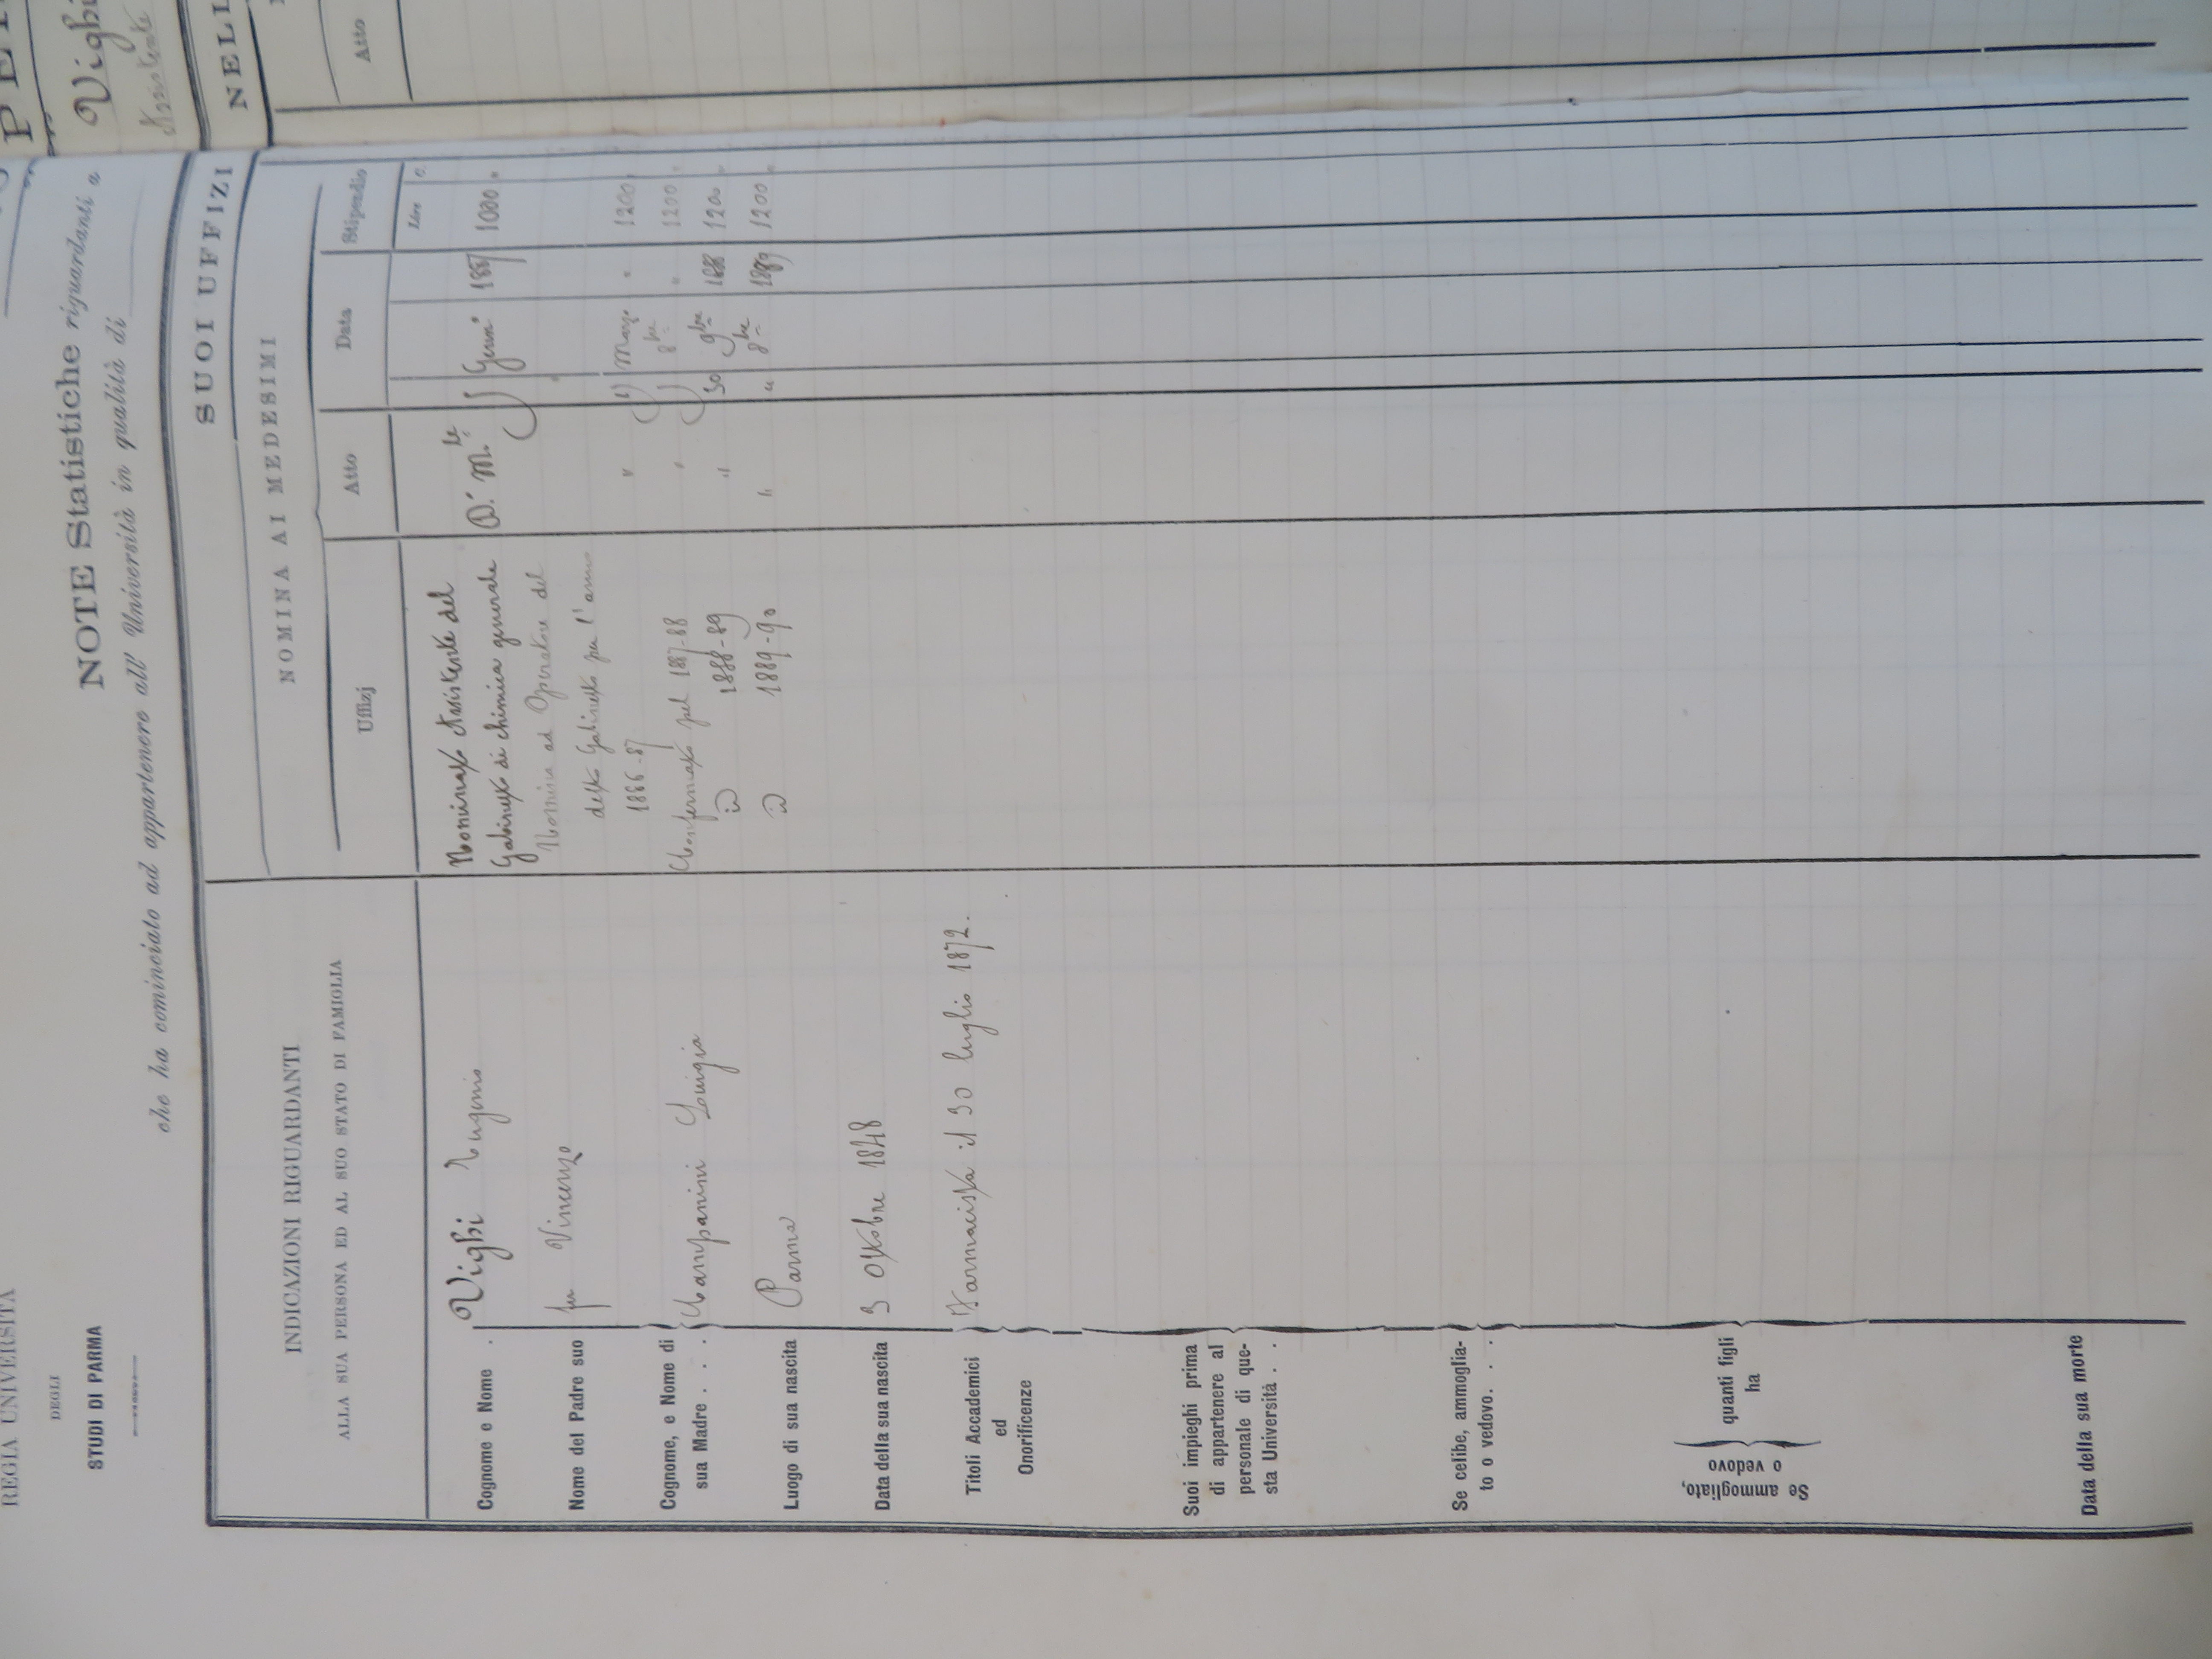 REGIA UNIVERSITÀ
DEGLI
STUDI DI PARMA
NOTE Statistiche riguardanti a
che ha cominciato ad appartenere all' Università in qualità di
INDICAZIONI RIGUARDANTI
ALLA SUA PERSONA ED AL SUO STATO DI FAMIGLIA
Cognome e Nome . Vighi Eugenio
Nome del Padre suo fu Vincenzo
Cognome, e Nome di
sua Madre . . . Campanini Louigia
Luogo di sua nascita Parma
Data della sua nascita 3 Ottobre 1848
Titoli Accademici Farmacista il 30 luglio 1872.
ed
Onorificenze
Suoi impieghi prima
di appartenere al
personale di que-
sta Università . .
Se celibe, ammoglia-
to o vedovo. . .
Se ammogliato,
o vedovo
quanti figli
ha
Data della sua morte
SUOI UFFIZI
NOMINA AI MEDESIMI
Uffizj Atto Data Stipendio
Lire C.
Nominato Assistente del
Gabinetto di chimica generale D. M.le Genn.º 1887 1000 "
Nomina ad Operatore del
detto Gabinetto per l'anno
1886-87 " Marzo " 1200 "
Confermato pel 1887-88 " 8bre " 1200 "
id 1888-89 " 30 9bre 1888 1200 "
id 1889-90 " " 8bre 1889 1200 "
PER
Vighi
Assistente
NELL
Atto